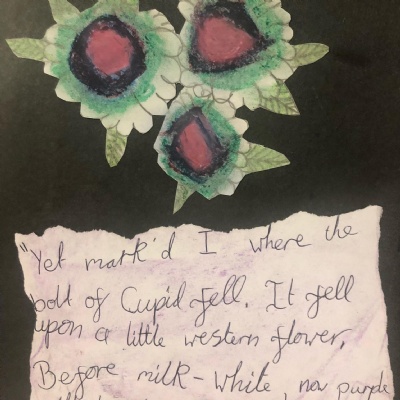 "Yet mark'd I where the
bolt of Cupid fell. It fell
upon a little western flower,
Before milk-white, now purple